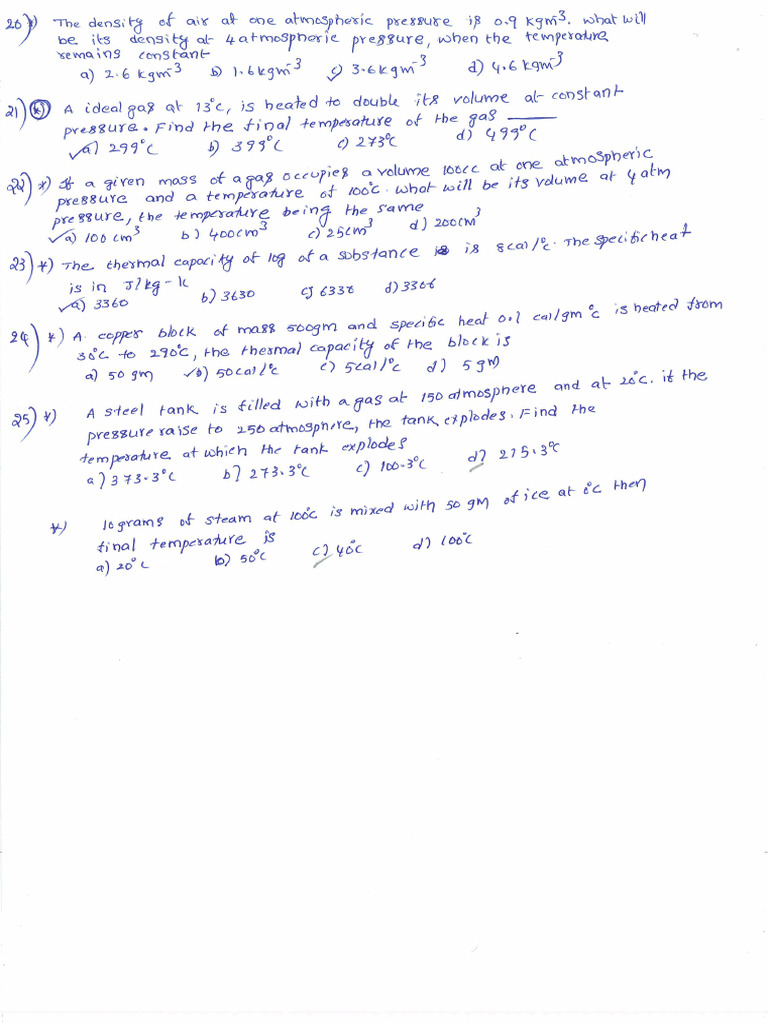 20) *) The density of air at one atmospheric pressure is 0.9 kgm³. what will
be its density at 4 atmospheric pressure, when the temperature
remains constant
a) 2.6 kgm⁻³ b) 1.6 kgm⁻³ c) 3.6 kgm⁻³ d) 4.6 kgm⁻³
21) *) A ideal gas at 13°c, is heated to double its volume at constant
pressure. Find the final temperature of the gas ____
a) 299°C b) 399°C c) 273°C d) 499°C
22) *) If a given mass of a gas occupies a volume 100cc at one atmospheric
pressure and a temperature of 100°c. what will be its volume at 4 atm
pressure, the temperature being the same
a) 100 cm³ b) 400cm³ c) 25cm³ d) 200cm³
23) *) The thermal capacity of 10g of a substance is 8cal/°c. The specific heat
is in J/kg-k
a) 3360 b) 3630 c) 6336 d) 3366
24) *) A copper block of mass 500gm and specific heat 0.1 cal/gm°c is heated from
30°c to 290°c, the thermal capacity of the block is
a) 50 gm b) 50cal/°c c) 5cal/°c d) 5 gm
25) *) A steel tank is filled with a gas at 150 atmosphere and at 20°c. if the
pressure raise to 250 atmosphere, the tank explodes. Find the
temperature at which the tank explodes
a) 373.3°C b) 273.3°C c) 100.3°C d) 215.3°C
*) 10 grams of steam at 100°c is mixed with 50 gm of ice at 0°c then
final temperature is
a) 20°C b) 50°C c) 40°C d) 100°C